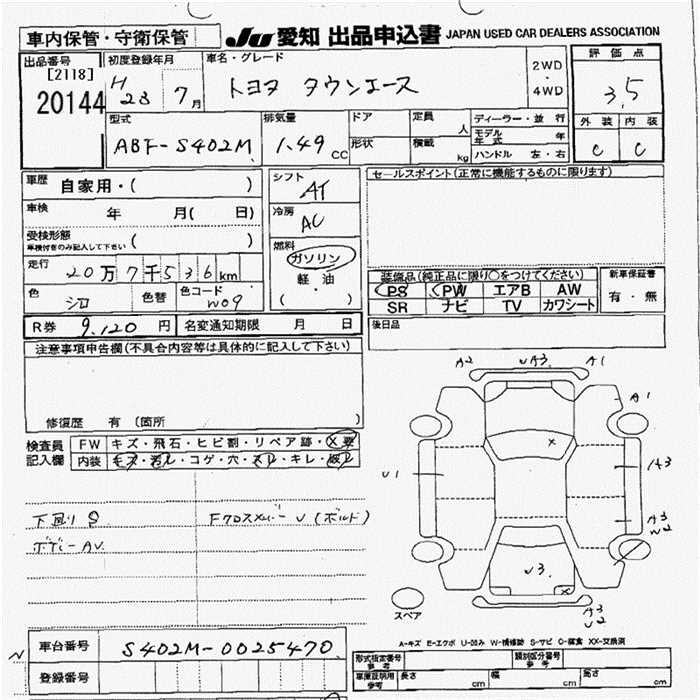 車内保管・守衛保管
JU 愛知 出品申込書 JAPAN USED CAR DEALERS ASSOCIATION
出品番号 [2118] 20144
初度登録年月 H 23 7月
車名・グレード トヨタ タウンエース
2WD・4WD
評価点 3.5
外装 C 内装 C
型式 ABF-S402M
排気量 1.49 CC
ドア 形状
定員 人
積載 kg
ディーラー・並行
モデル年式 年
ハンドル 左・右
車歴 自家用・( )
車検 年 月( 日)
受検形態 車検付きのみ記入して下さい ( )
走行 20万7千536km
色 シロ 色替 色コード W09
シフト AT
冷房 AC
燃料 ガソリン 軽・油 ( )
セールスポイント(正常に機能するものに限ります)
装備品(純正品に限り○をつけてください)
PS PW エアB AW
SR ナビ TV カワシート
新車保証書 有・無
R券 9,120円 名変通知期限 月 日
後日品
注意事項申告欄(不具合内容等は具体的に記入して下さい)
修復歴 有 (箇所
検査員記入欄
FW キズ・飛石・ヒビ割・リペア跡・X要
内装 キズ・汚れ・コゲ・穴・スレ・キレ・
A2 UA3 A1
A1
X
U1
A3
A3 W2
U3
X
A3 U2
スペア
下回り S
ボデーAU
Fクロスメンバー U (ボルド)
A-キズ E-エクボ U-凹み W-補修跡 S-サビ C-腐食 XX-交換済
N
車台番号 S402M-0025470
登録番号
型式指定番号 参考
類別区分番号 参考
車庫証明用 参考 長さ cm 幅 cm 高さ cm